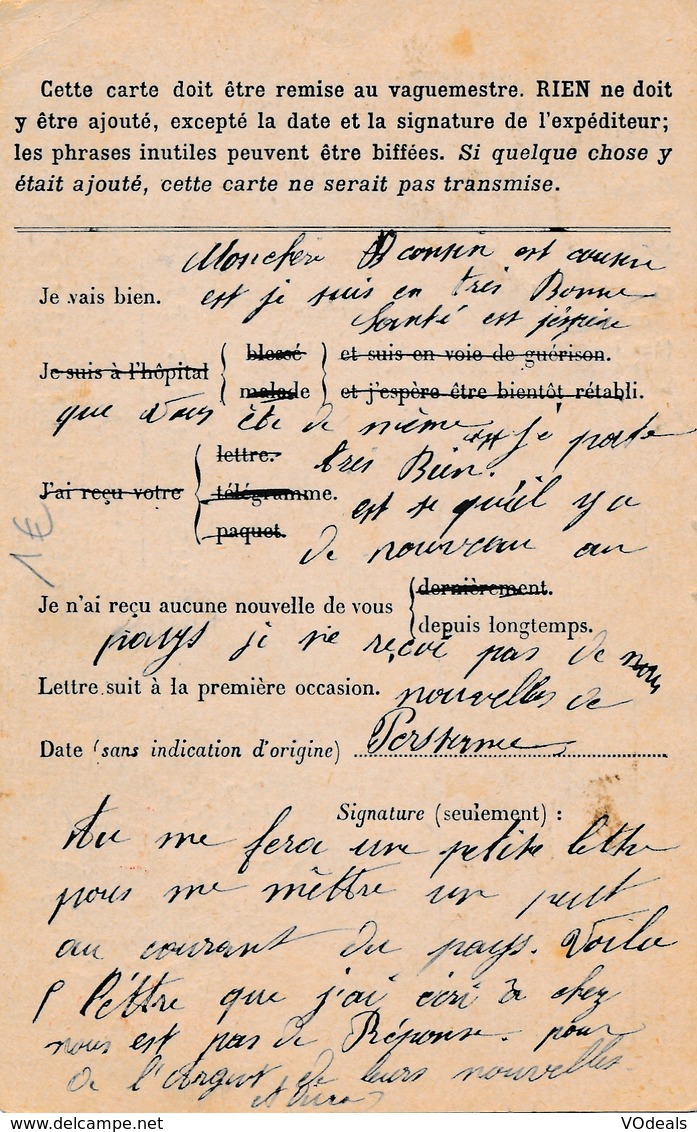 Cette carte doit être remise au vaguemestre. RIEN ne doit
y être ajouté, excepté la date et la signature de l'expéditeur;
les phrases inutiles peuvent être biffées. Si quelque chose y
était ajouté, cette carte ne serait pas transmise.
Moncher cousin est cousine
Je vais bien. est je suis en très Bonne
Santé est j'espère
Je suis à l'hôpital { blessé { et suis en voie de guérison.
malade { et j'espère être bientôt rétabli.
que vous ête de même je porte
J'ai reçu votre { lettre. très Bien.
télégramme. est se qu'il y a
paquet. de nouveau au
1€
Je n'ai reçu aucune nouvelle de vous { dernièrement.
depuis longtemps.
pays je ne reçoi pas de
Lettre suit à la première occasion. nouvelles de
Date (sans indication d'origine) Personne
Signature (seulement) :
tu me fera une petite lettre
pour me mêttre un peut
au courant du pays. Voila
lèttre que j'ai écri à chez
nous est pas de Réponse. pour
de l'Argent de leurs nouvelles.
VDeals